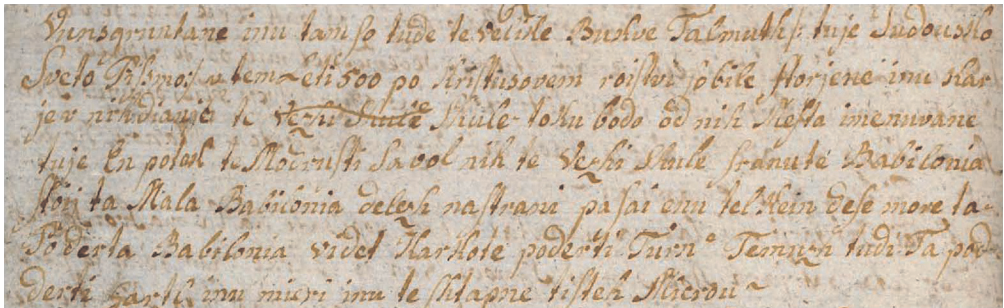 Vunsgruntane inu tam so tude te velike Bukve Talmuths tuje Judousko
Sveto Pismo v tem leti 500 po Kristusovem roistvi so bile storjene inu kar
je v te Skule toku bodo od nih Mesta imenuvane
tuje En potok te Modrusti Savol nih te Vezhi Skule stranute Babilonia
stoji ta Mala Babilonia delezh nastrani pa sai enu tel klein dese more ta
Poderta Babilonia videt Karkote poderti Turn Temuzh tudi Ta pod
derti Garti inu mieri inu te shtapne tisteh Mierou